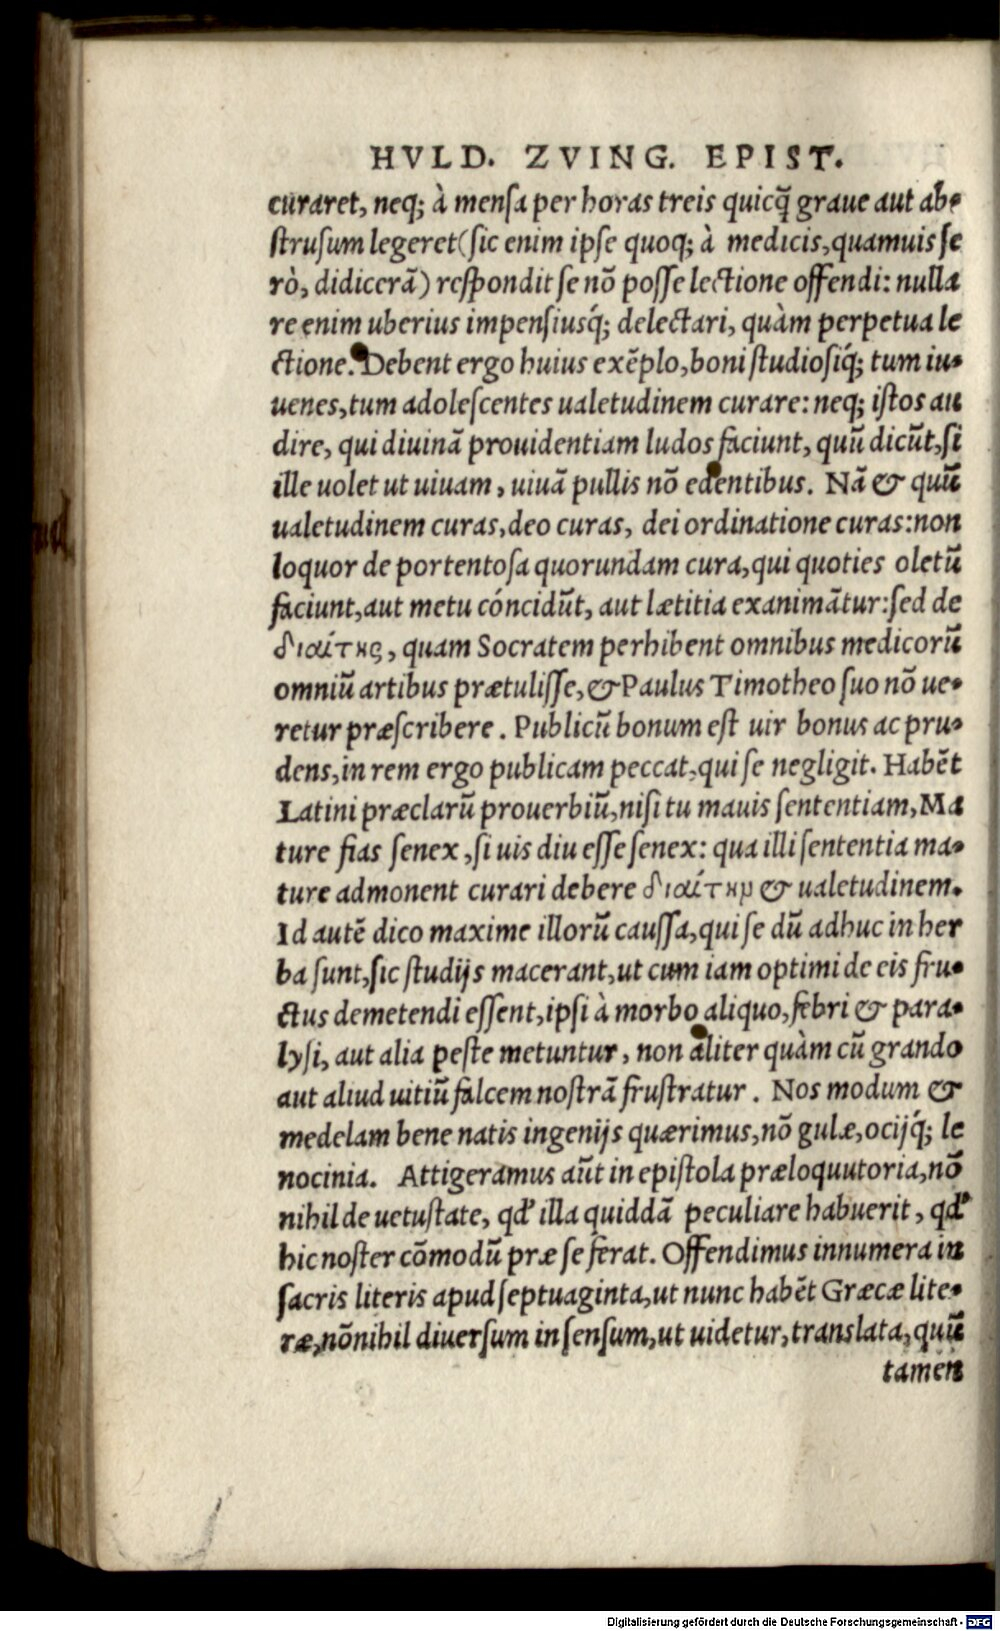 HVLD. ZVING. EPIST.
curaret, neq; à mensa per horas treis quicq̃ graue aut ab-
strusum legeret (sic enim ipse quoq; à medicis, quamuis se
rò, didicerã) respondit se nõ posse lectione offendi: nulla
re enim uberius impensiusq́; delectari, quàm perpetua le
ctione. Debent ergo huius exẽplo, boni studiosiq́; tum iu-
uenes, tum adolescentes ualetudinem curare: neq; istos au
dire, qui diuinã prouidentiam ludos faciunt, quũ dicũt, si
ille uolet ut uiuam, uiuã pullis nõ edentibus. Nã & quũ
ualetudinem curas, deo curas, dei ordinatione curas: non
loquor de portentosa quorundam cura, qui quoties oletũ
faciunt, aut metu cóncidũt, aut lætitia exanimãtur: sed de
διαίτης, quam Socratem perhibent omnibus medicorũ
omniũ artibus prætulisse, & Paulus Timotheo suo nõ ue-
retur præscribere. Publicũ bonum est uir bonus ac pru-
dens, in rem ergo publicam peccat, qui se negligit. Habẽt
Latini præclarũ prouerbiũ, nisi tu mauis sententiam, Ma
ture fias senex, si uis diu esse senex: qua illi sententia ma-
ture admonent curari debere διαίτημ & ualetudinem.
Id autẽ dico maxime illorũ caussa, qui se dũ adhuc in her
ba sunt, sic studijs macerant, ut cum iam optimi de eis fru-
ctus demetendi essent, ipsi à morbo aliquo, febri & para-
lysi, aut alia peste metuntur, non aliter quàm cũ grando
aut aliud uitiũ falcem nostrã frustratur. Nos modum &
medelam bene natis ingenijs quærimus, nõ gulæ, ocijq́; le
nocinia. Attigeramus aũt in epistola præloquutoria, nõ
nihil de uetustate, qđ illa quiddã peculiare habuerit, qđ
hic noster cõmodũ præ se ferat. Offendimus innumera in
sacris literis apud septuaginta, ut nunc habẽt Græcæ lite-
ræ, nõnihil diuersum in sensum, ut uidetur, translata, quũ
tamen
Digitalisierung gefördert durch die Deutsche Forschungsgemeinschaft - DFG